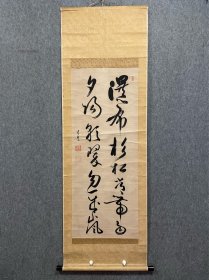 瀑布杉松常帶雨
夕陽彩翠忽成嵐